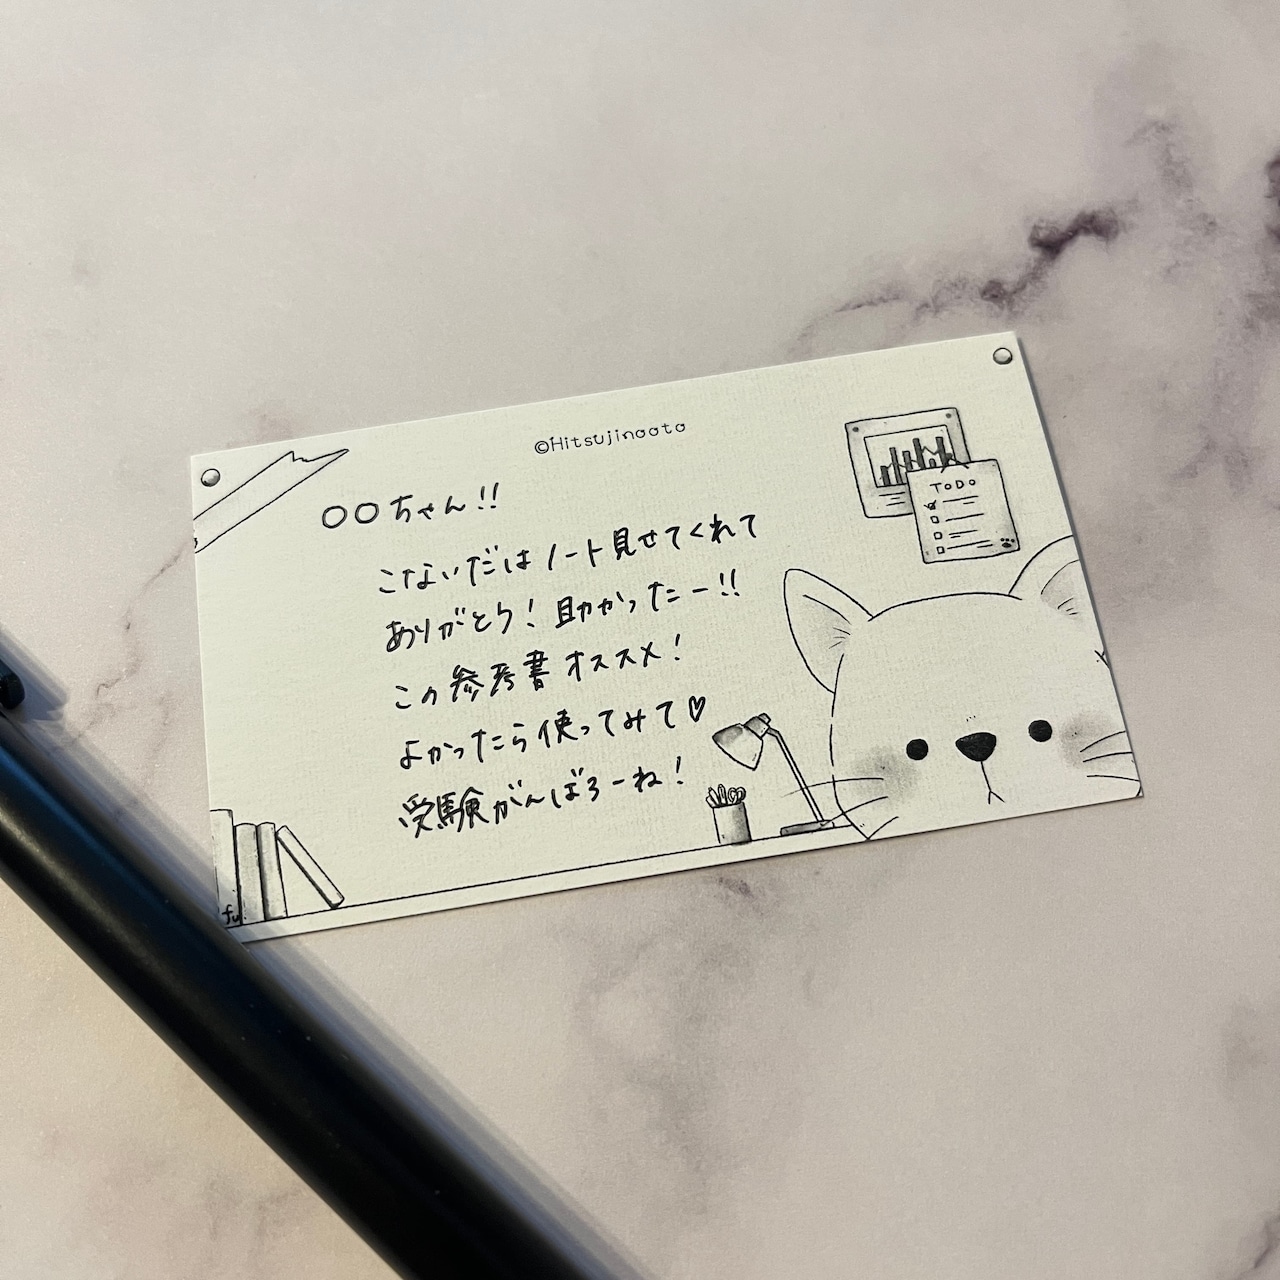 ©Hitsujinooto
TODO
〇〇ちゃん!!
こないだはノート見せてくれて
ありがとう!助かったー!!
この参考書オススメ!
よかったら使ってみて♡
受験がんばろーね!
fu.